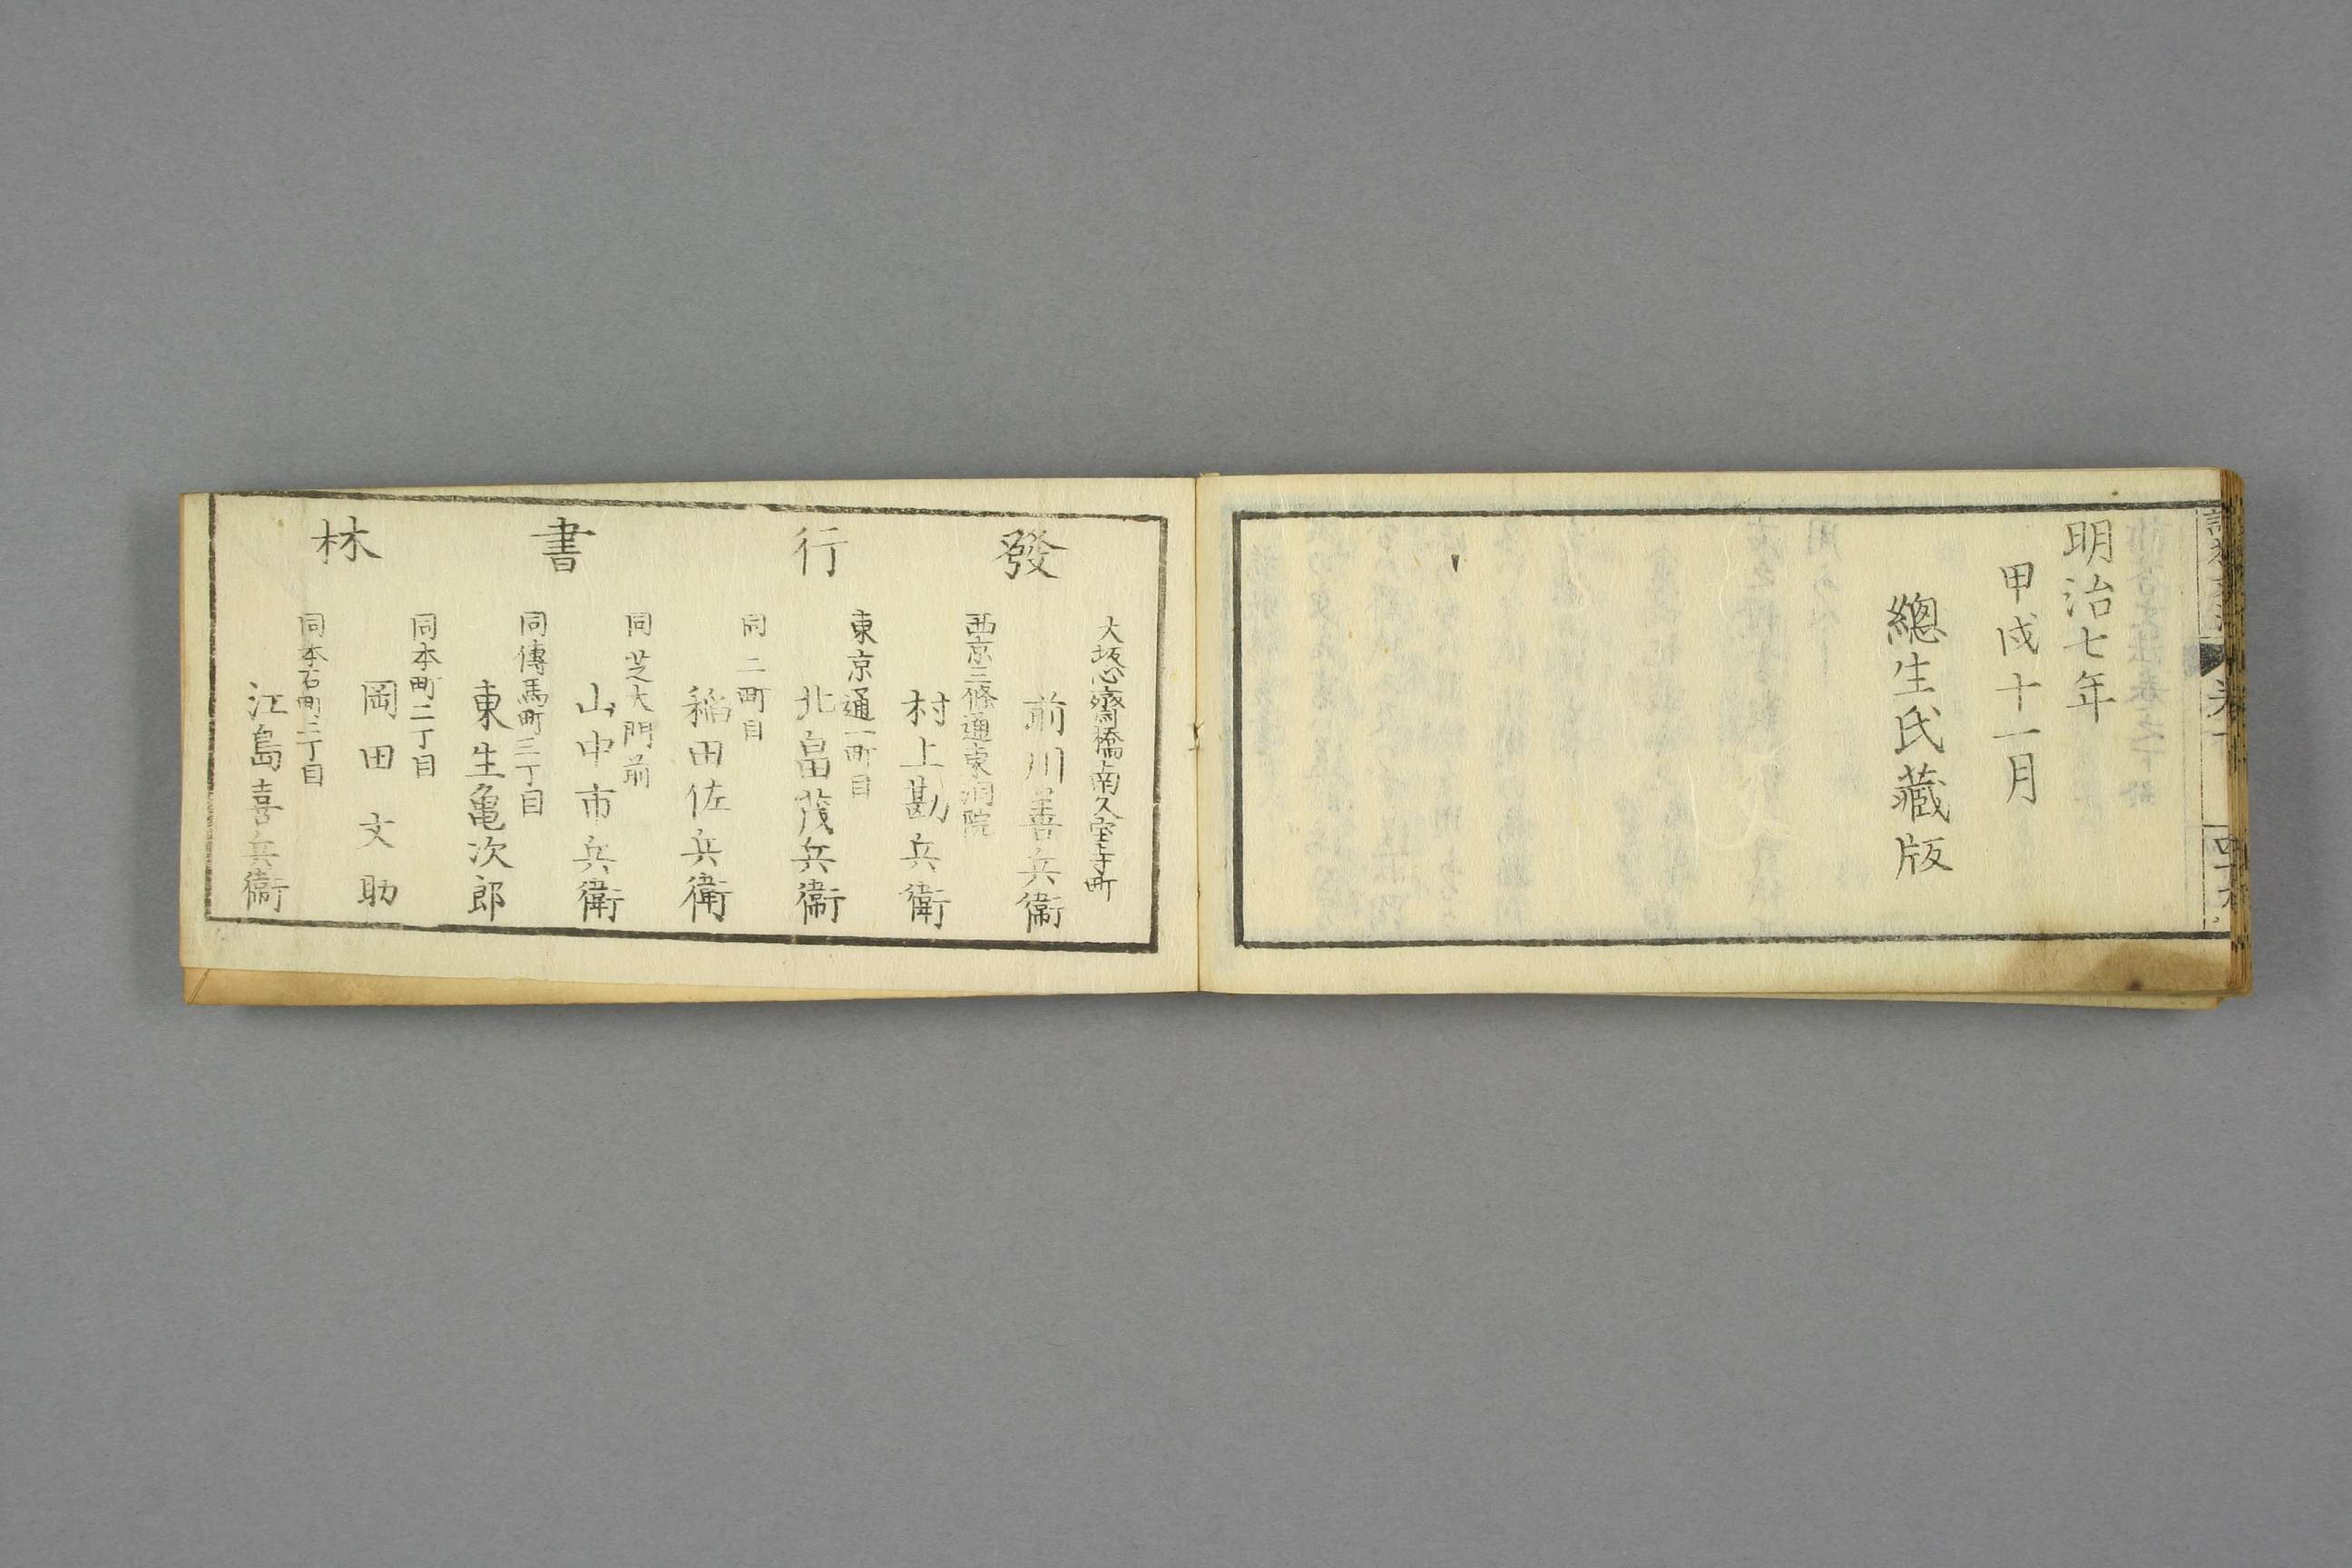 明治七年
甲戌十一月
總生氏藏版
發行書林
大坂心齋橋南久宝寺町
前川善兵衞
西京三條通東洞院
村上勘兵衛
東京通一町目
北畠茂兵衞
同二町目
稲田佐兵衛
同芝大門前
山中市兵衛
同傳馬町三丁目
東生亀次郎
同本町二丁目
岡田文助
同本石町二丁目
江島喜兵衞